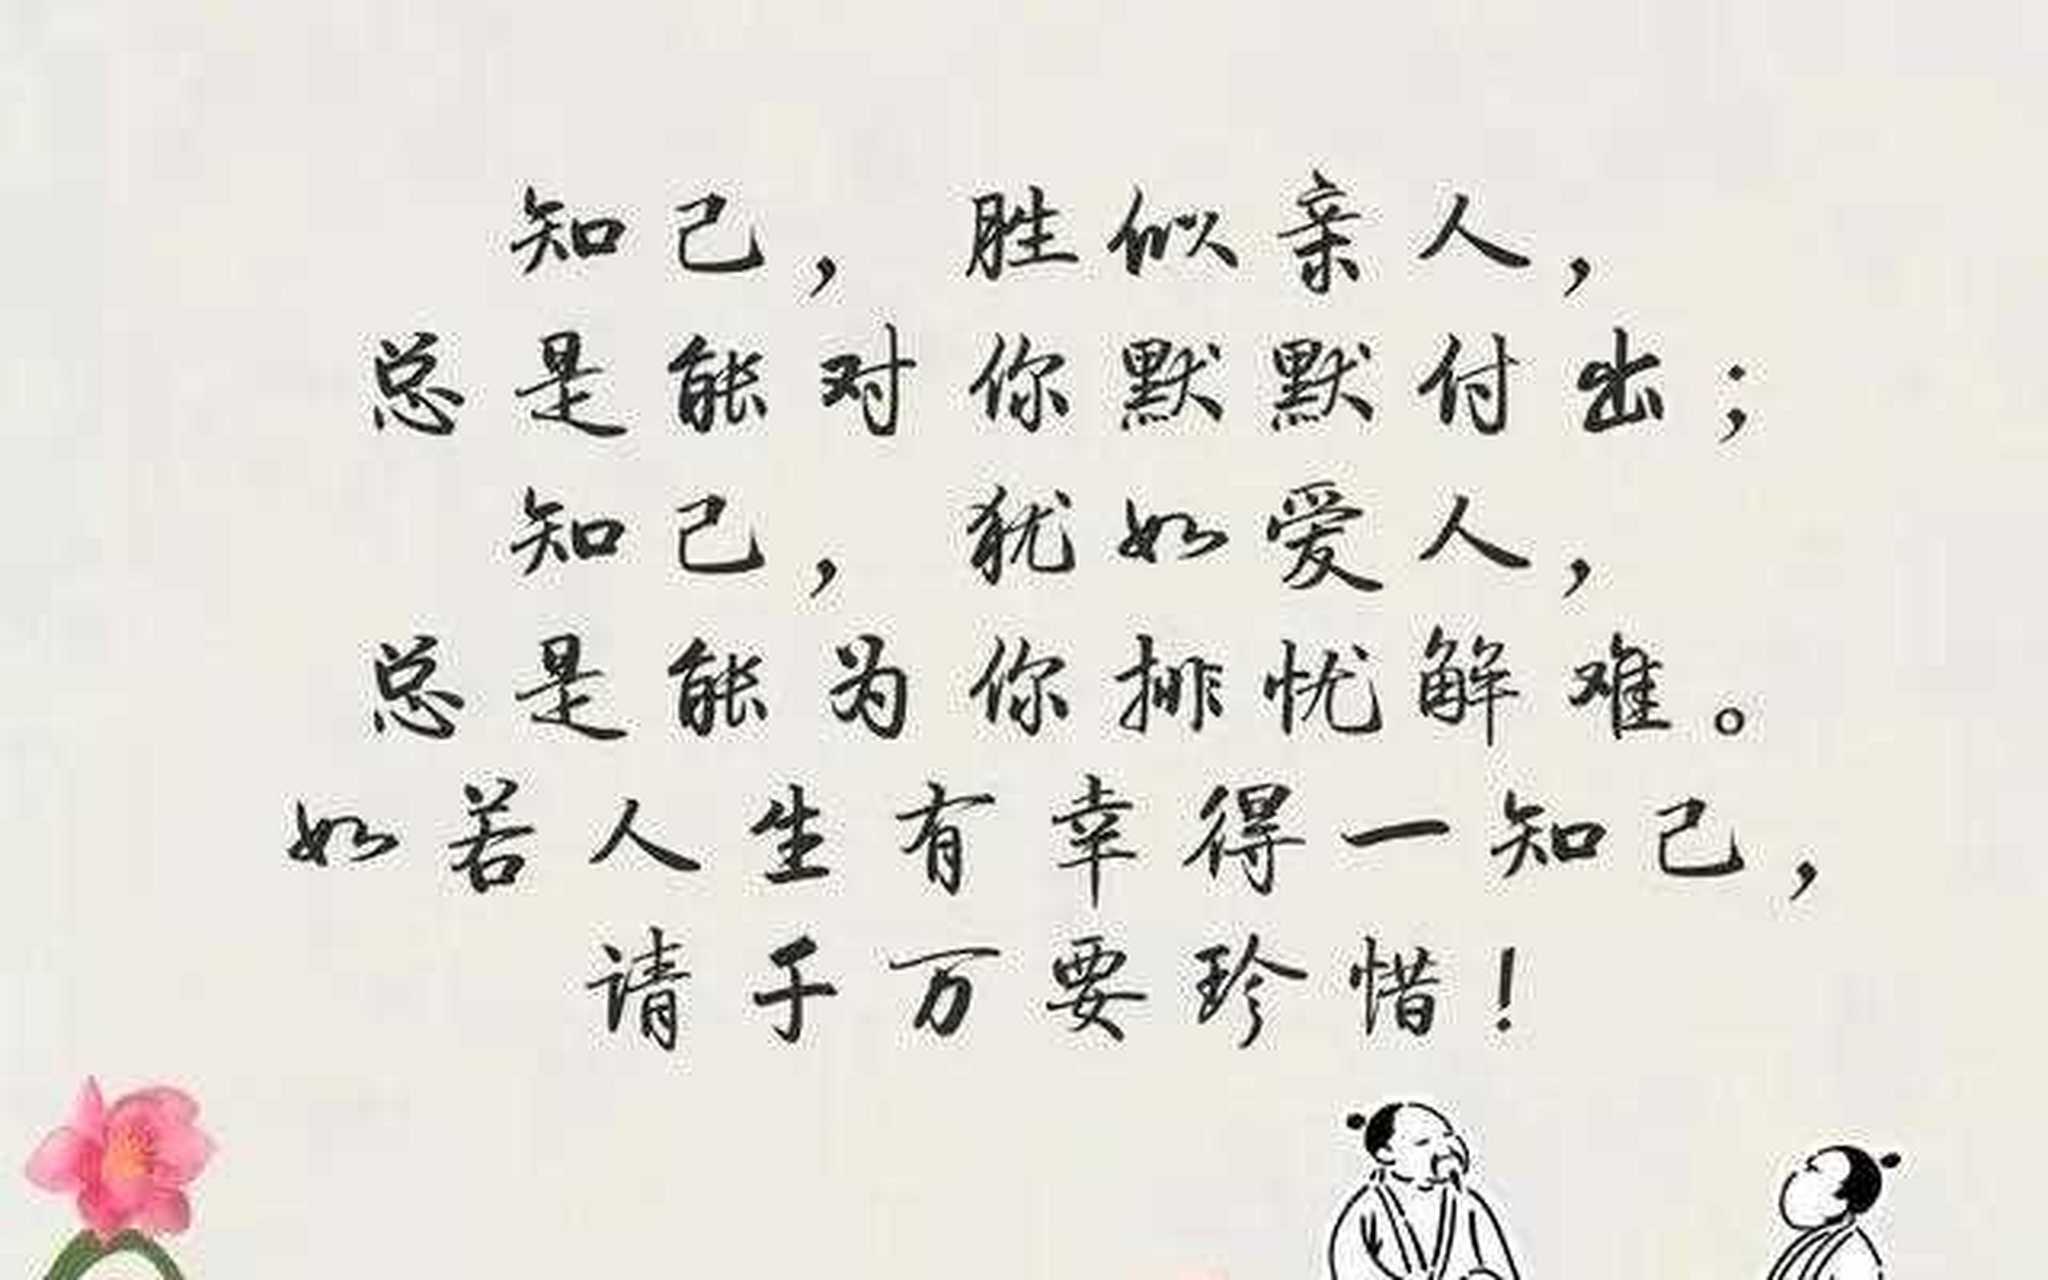 知己，胜似亲人，
总是能对你默默付出；
知己，犹如爱人，
总是能为你排忧解难。
如若人生有幸得一知己，
请千万要珍惜！